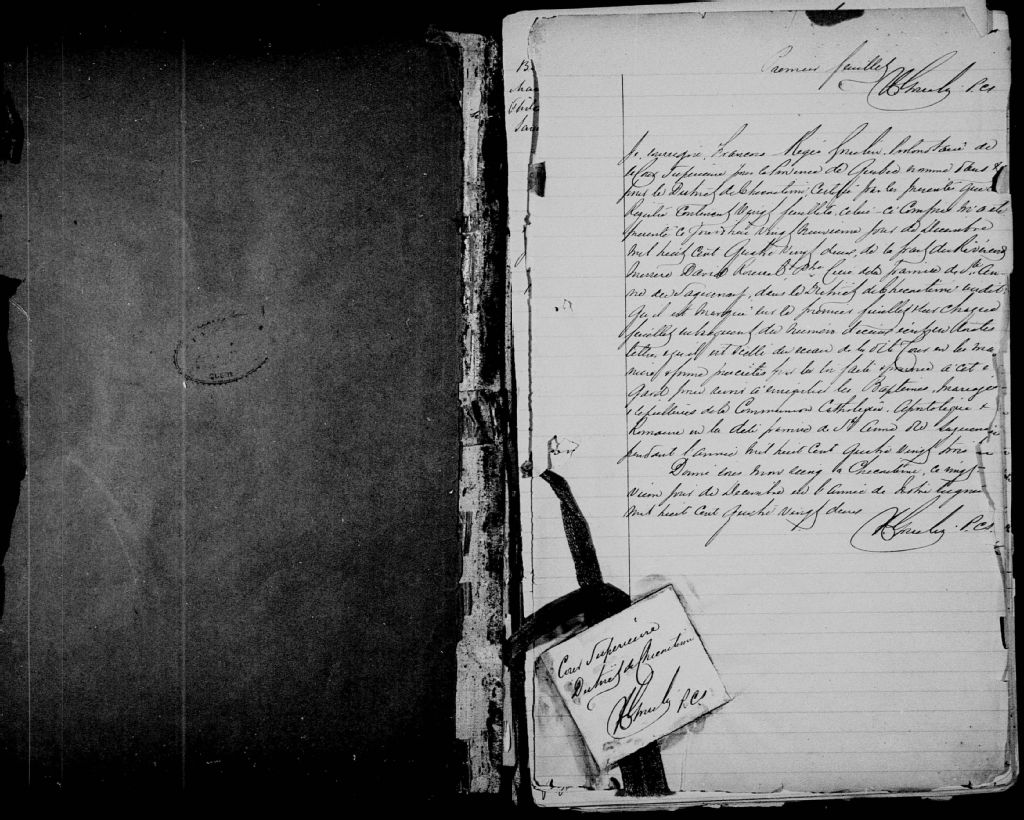 Premier feuillet
P.C.S.
Je soussigné, François Regis Gosselin, Protonotaire de
la Cour Superieure pour la Province de Quebec nommé dans &
pour le District de Chicoutimi, Certifie par les presente que ce
Registre Contenant Vingt feuillets, celui-ci Compris m'a été
presenté ce jourd'hui Vingt jour de Decembre
Mil huit Cent Quatre Vingt deux, de la part du Révérend
Messire David Roussel Ptre Curé de la paroisse de Ste An-
ne du Saguenay, dans le District de Chicoutimi susdit
Qu'il est marqué sur le premier feuillet & sur Chaque
feuillet du Numero écrit en toutes
lettres & qu'il est scellé du sceau de la dite Cour en la ma
niere & forme prescrites par la loi faite & pourvue à cet é
gard pour servir à enregistrer les Baptêmes, Mariages
& sepultures de la Communion Catholique, Apostolique &
Romaine en la dite paroisse de Ste Anne du Saguenay
pendant l'année Mil huit Cent Quatre Vingt trois
Donné sous mon seing à Chicoutimi, ce vingt
jour de Decembre en l'année de Notre Seigneur
Mil huit Cent Quatre Vingt deux
P.C.S.
Cour Superieure
District de Chicoutimi
P.C.S.